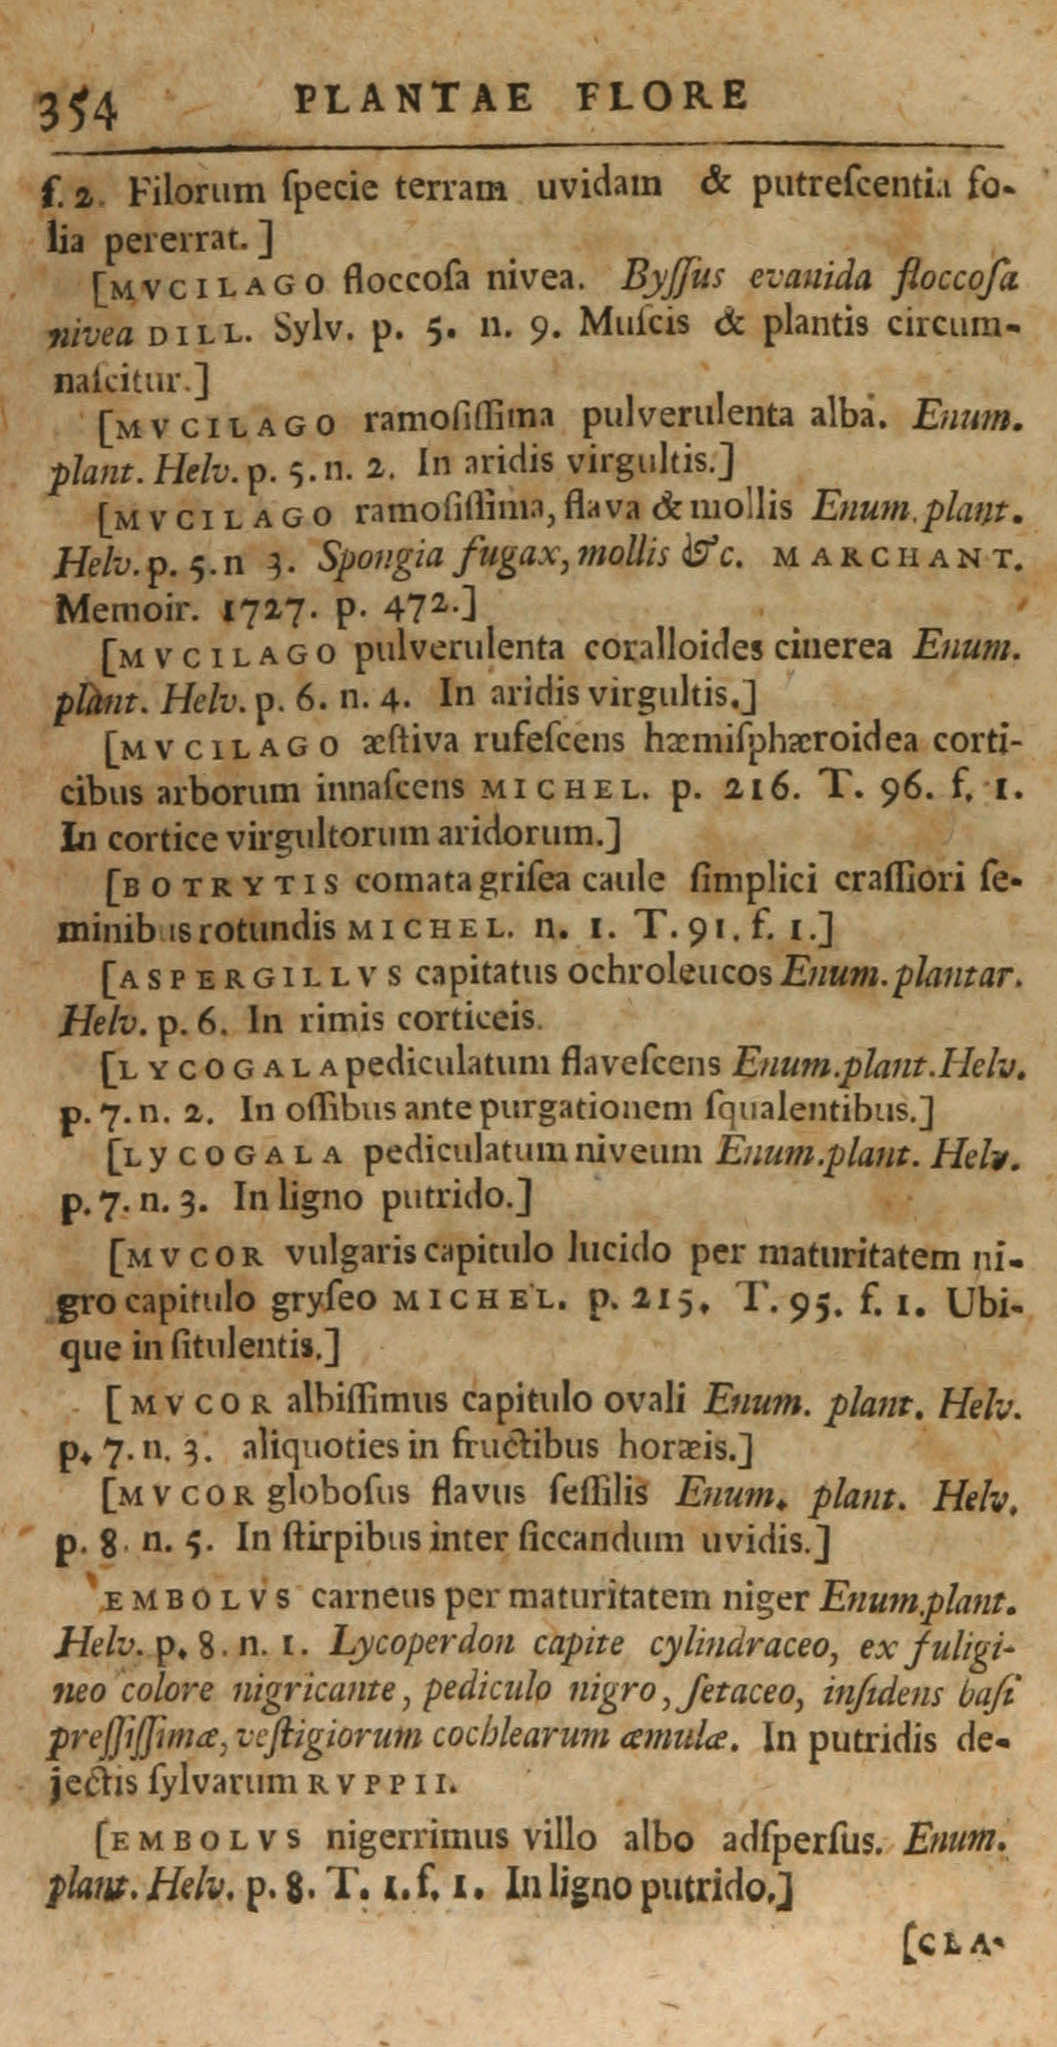 354 PLANTAE FLORE
f. 2. Filorum ſpecie terram uvidam & putreſcentia fo-
lia pererrat.]
[MVCILAGO floccoſa nivea. Byſſus evanida floccoſa
nivea DILL. Sylv. p. 5. n. 9. Muſcis & plantis circum-
naſcitur.]
[MVCILAGO ramoſiſſima pulverulenta alba. Enum.
plant. Helv. p. 5. n. 2. In aridis virgultis.]
[MVCILAGO ramoſiſſima, flava & mollis Enum. plant.
Helv. p. 5. n 3. Spongia fugax, mollis &c. MARCHANT.
Memoir. 1727. p. 472.]
[MVCILAGO pulverulenta coralloides cinerea Enum.
plant. Helv. p. 6. n. 4. In aridis virgultis.]
[MVCILAGO æſtiva rufeſcens hæmiſphæroidea corti-
cibus arborum innaſcens MICHEL. p. 216. T. 96. f. 1.
In cortice virgultorum aridorum.]
[BOTRYTIS comata griſea caule ſimplici craſſiori ſe-
minibus rotundis MICHEL. n. 1. T. 91. f. 1.]
[ASPERGILLVS capitatus ochroleucos Enum. plantar.
Helv. p. 6. In rimis corticeis.
[LYCOGALA pediculatum flaveſcens Enum. plant. Helv.
p. 7. n. 2. In oſſibus ante purgationem ſqualentibus.]
[LyCOGALA pediculatum niveum Enum. plant. Helv.
p. 7. n. 3. In ligno putrido.]
[MVCOR vulgaris capitulo lucido per maturitatem ni-
gro capitulo gryſeo MICHEL. p. 215. T. 95. f. 1. Ubi-
que in ſitulentis.]
[MVCOR albiſſimus capitulo ovali Enum. plant. Helv.
p. 7. n. 3. aliquoties in fructibus horæis.]
[MVCOR globoſus flavus ſeſſilis Enum. plant. Helv.
p. 8. n. 5. In ſtirpibus inter ſiccandum uvidis.]
EMBOLVS carneus per maturitatem niger Enum. plant.
Helv. p. 8. n. 1. Lycoperdon capite cylindraceo, ex fuligi-
neo colore nigricante, pediculo nigro, ſetaceo, inſidens baſi
preſſiſſimæ, veſtigiorum cochlearum æmulæ. In putridis de-
jectis ſylvarum RVPPII.
[EMBOLVS nigerrimus villo albo adſperſus. Enum.
plant. Helv. p. 8. T. 1. f. 1. In ligno putrido.]
[CLA-